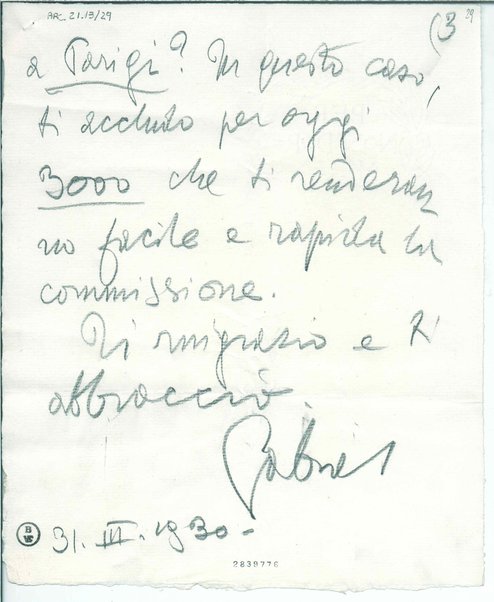 ARC. 21.13/29
(3
29
a Parigi? In questo caso,
ti accludo per oggi
3000 che ti renderan
no facile e rapida la
commissione.
Ti ringrazio e ti
abbraccio.
Gabriel
31. III. 1930-
2839776